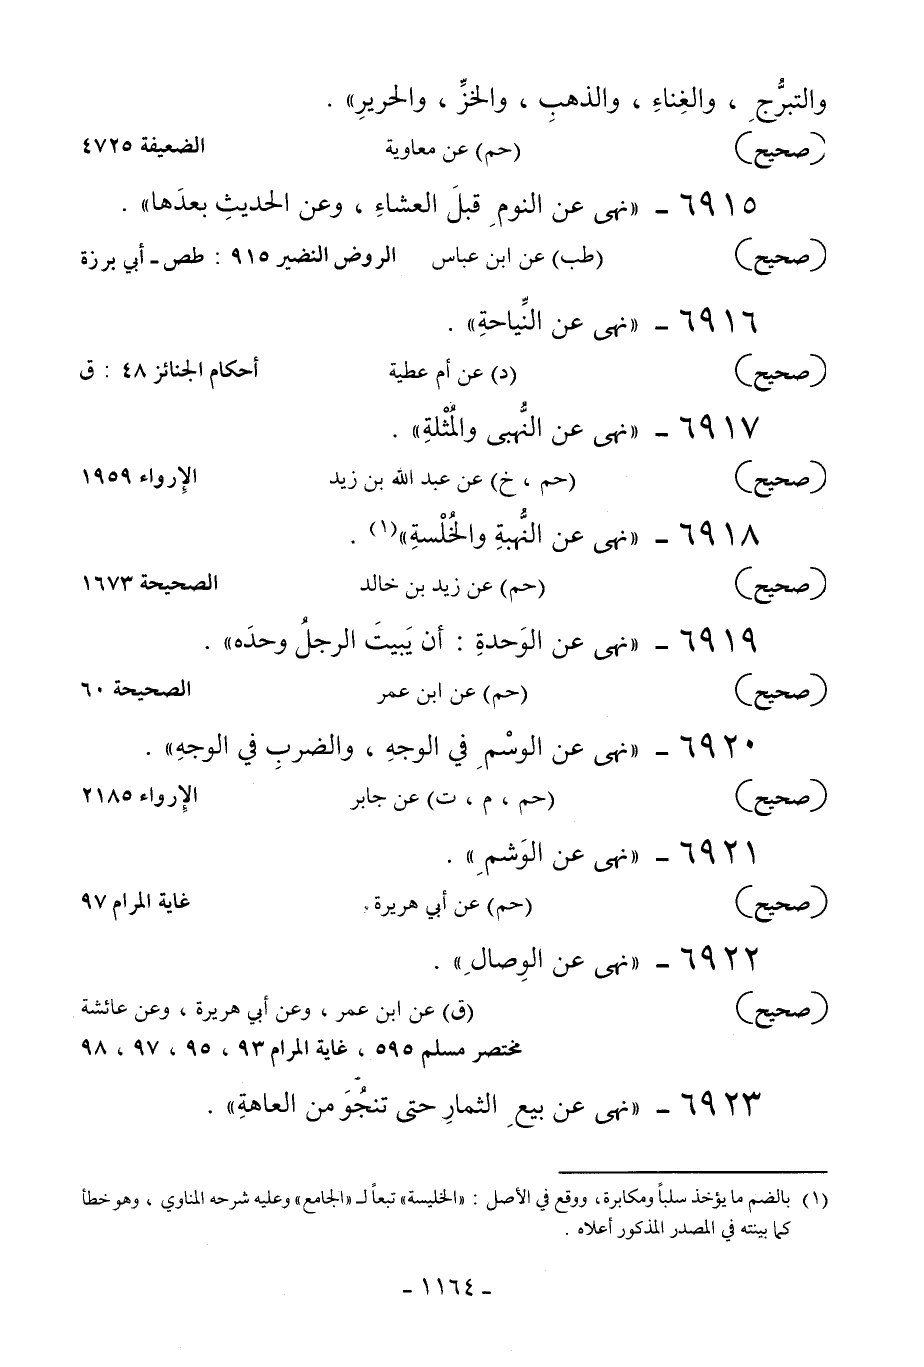 والتبرُّجِ ، والغِناءِ ، والذهبِ ، والخزِّ ، والحريرِ» .
(صحيح) (حم) عن معاوية الضعيفة ٤٧٢٥
٦٩١٥ - «نهى عن النومِ قبلَ العشاءِ ، وعن الحديثِ بعدَها» .
(صحيح) (طب) عن ابن عباس الروض النضير ٩١٥ : طص - أبي برزة
٦٩١٦ - «نهى عن النِّياحةِ» .
(صحيح) (د) عن أم عطية أحكام الجنائز ٤٨ : ق
٦٩١٧ - «نهى عن النُّهبى والمُثْلةِ» .
(صحيح) (حم ، خ) عن عبد الله بن زيد الإرواء ١٩٥٩
٦٩١٨ - «نهى عن النُّهبةِ والخُلْسةِ»(١) .
(صحيح) (حم) عن زيد بن خالد الصحيحة ١٦٧٣
٦٩١٩ - «نهى عن الوَحدةِ : أن يَبيتَ الرجلُ وحدَه» .
(صحيح) (حم) عن ابن عمر الصحيحة ٦٠
٦٩٢٠ - «نهى عن الوسْمِ في الوجهِ ، والضربِ في الوجهِ» .
(صحيح) (حم ، م ، ت) عن جابر الإرواء ٢١٨٥
٦٩٢١ - «نهى عن الوَشمِ» .
(صحيح) (حم) عن أبي هريرة. غاية المرام ٩٧
٦٩٢٢ - «نهى عن الوِصالِ» .
(صحيح) (ق) عن ابن عمر ، وعن أبي هريرة ، وعن عائشة
مختصر مسلم ٥٩٥ ، غاية المرام ٩٣ ، ٩٥ ، ٩٧ ، ٩٨
٦٩٢٣ - «نهى عن بيعِ الثمارِ حتى تنجُوَ من العاهةِ» .
(١) بالضم ما يؤخذ سلباً ومكابرة، ووقع في الأصل : «الخليسة» تبعاً لـ «الجامع» وعليه شرحه المناوي ، وهو خطأ
كما بينته في المصدر المذكور أعلاه .
- ١١٦٤ -